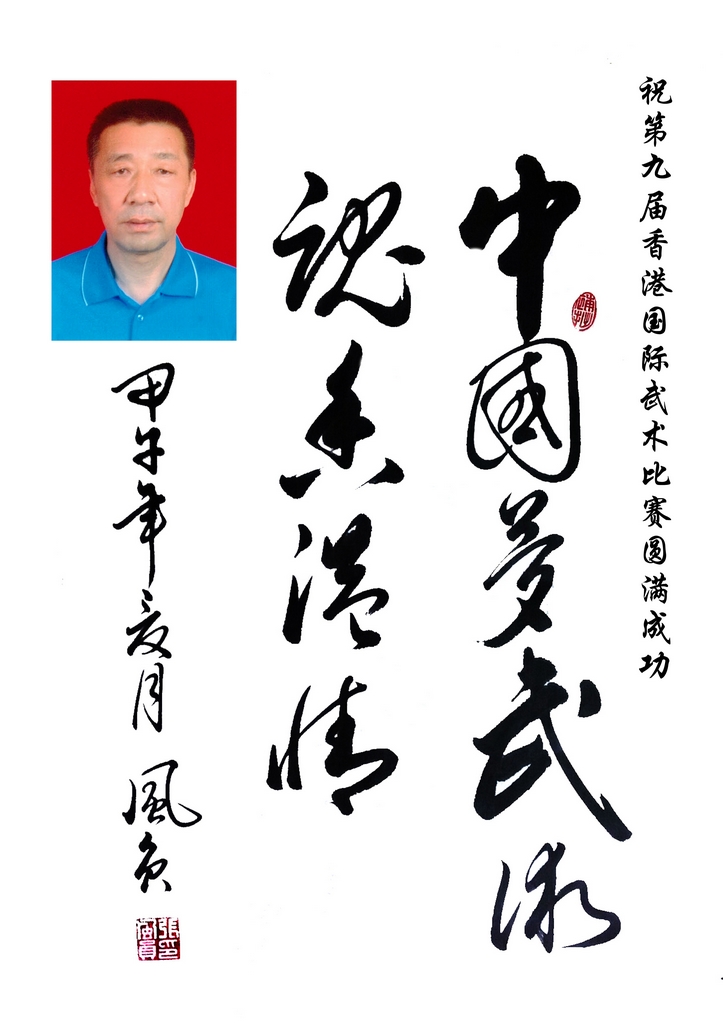 祝第九届香港国际武术比赛圆满成功
中國夢武術
魂香港情
甲午年夏月 風員
張印風員